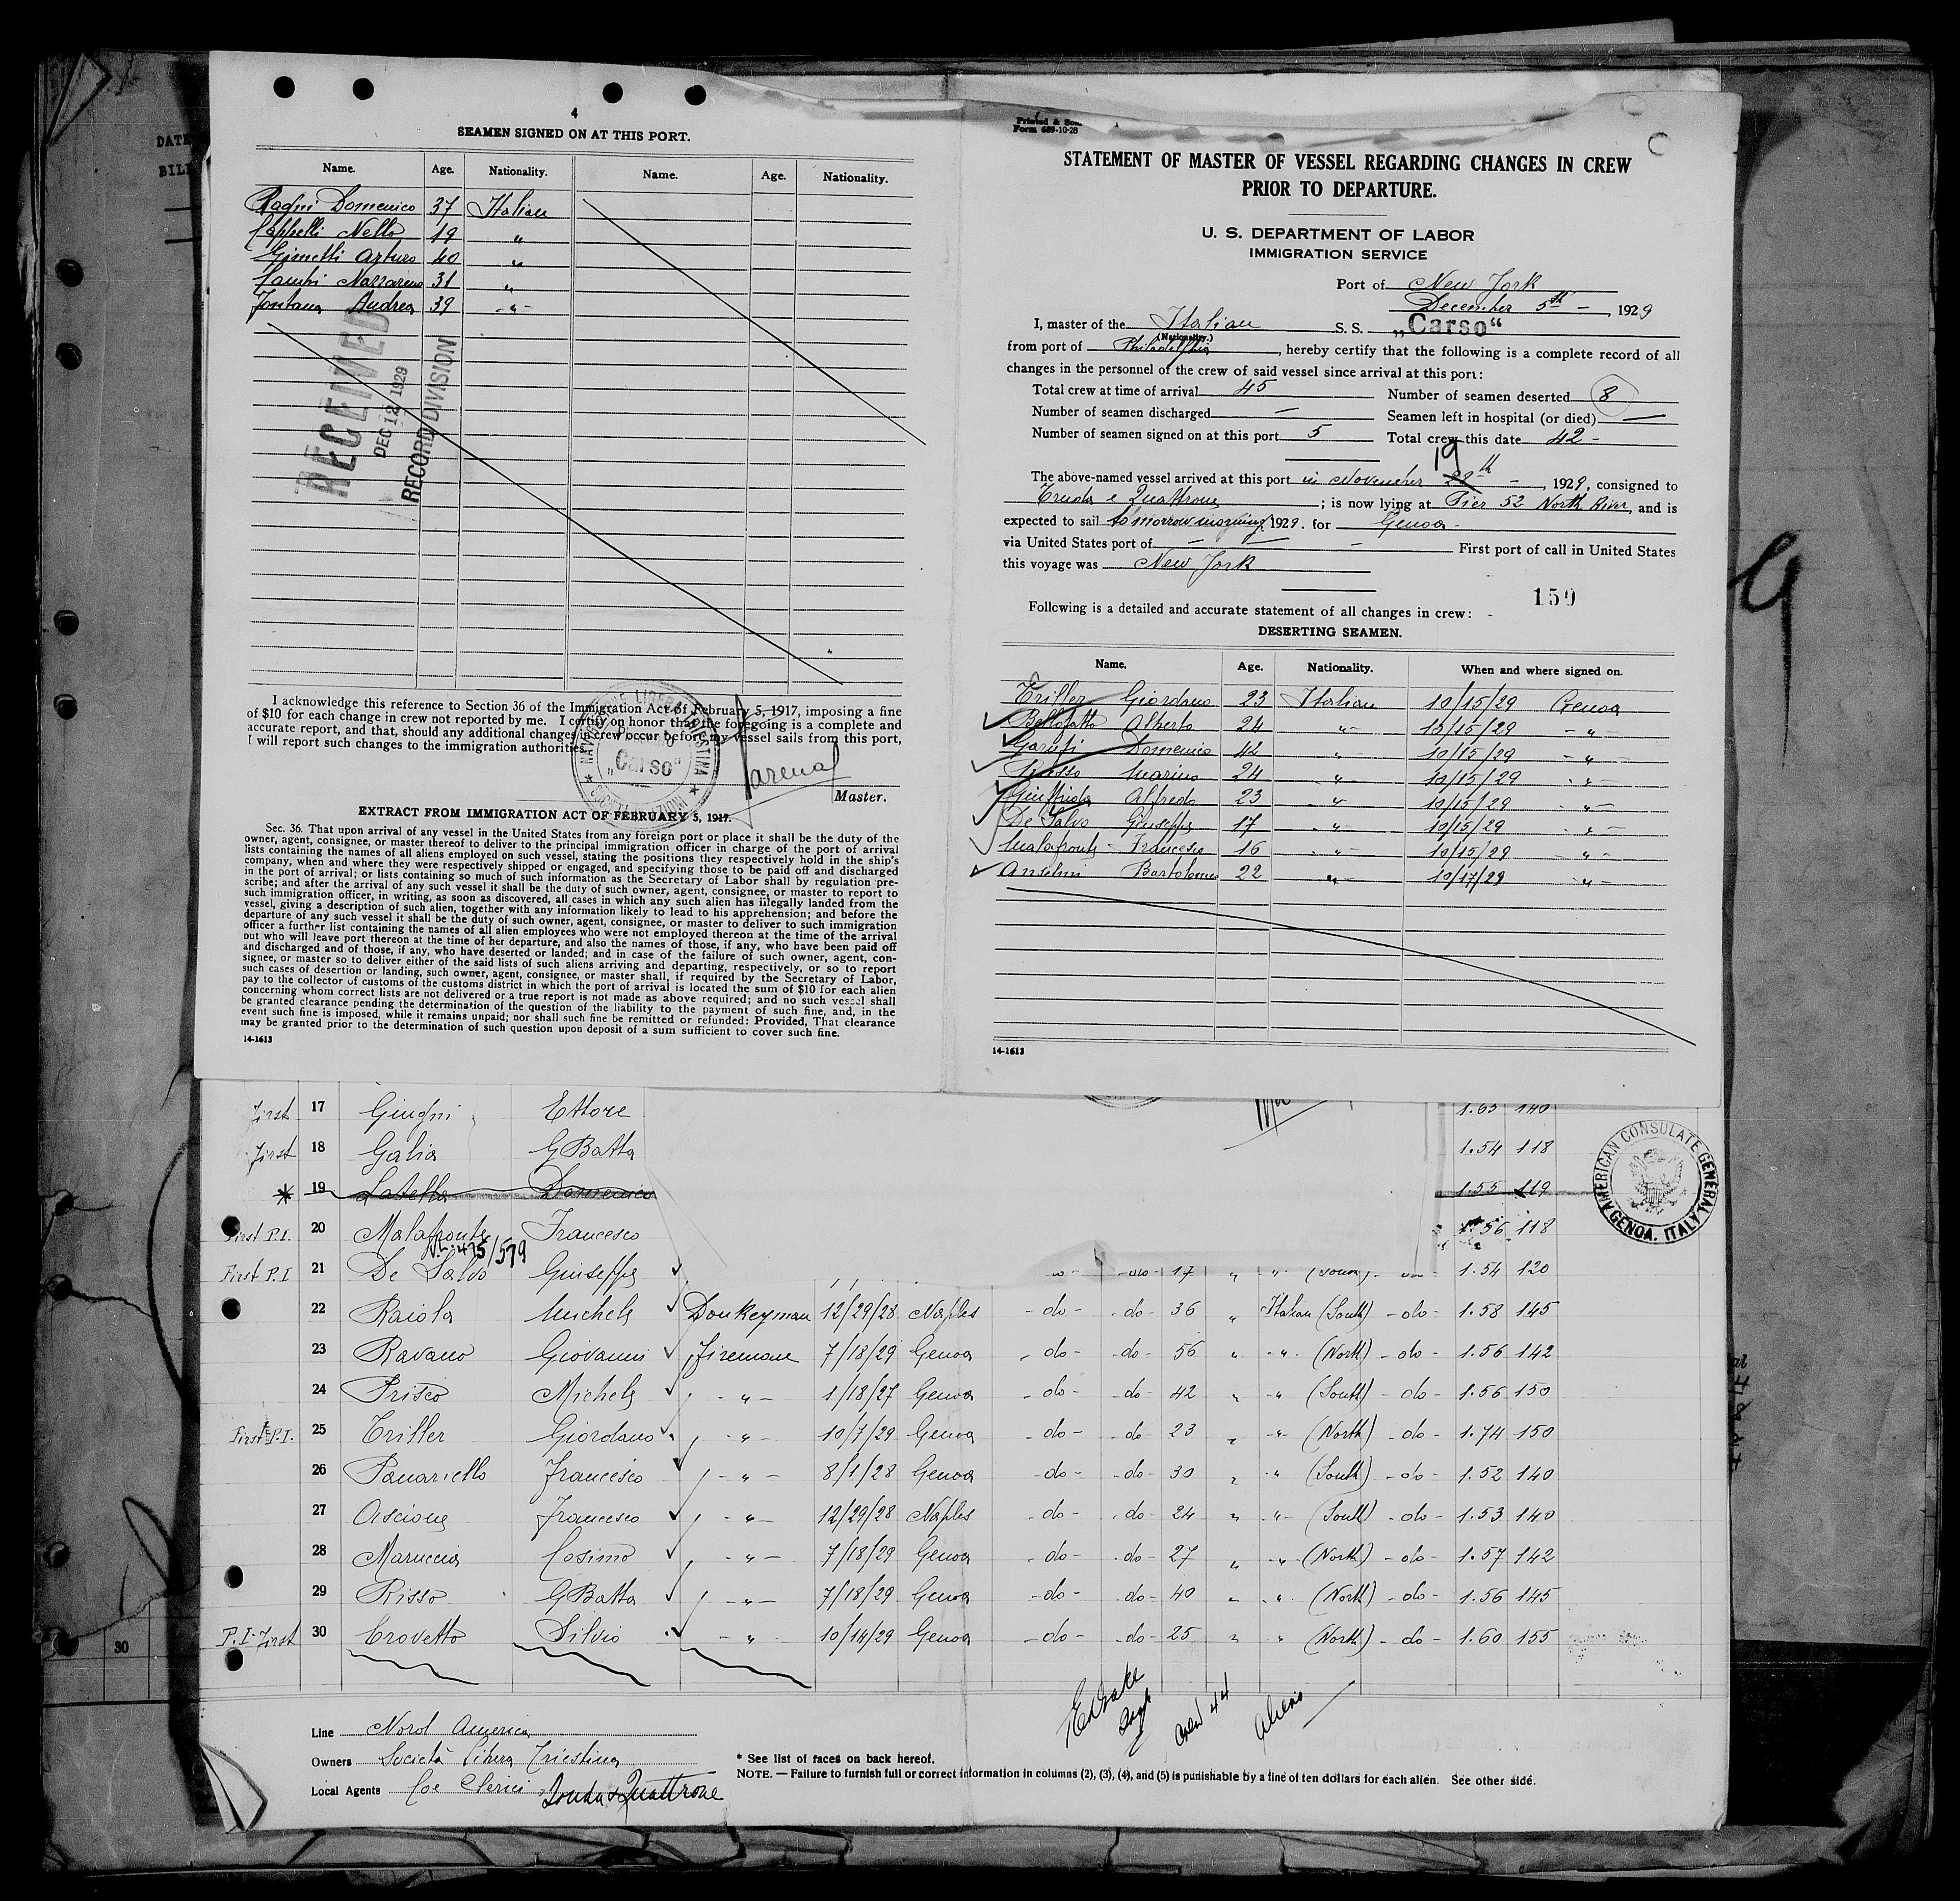 4
SEAMEN SIGNED ON AT THIS PORT.
Name. Age. Nationality. Name. Age. Nationality.
Ragni Domenico 37 Italian
Cappelli Nello 19 "
Gimetti Arturo 40 "
Nazzareno 31 "
Fontana Andrea 39 "
RECEIVED
DEC 12 1929
RECORD DIVISION
I acknowledge this reference to Section 36 of the Immigration Act of February 5, 1917, imposing a fine
of $10 for each change in crew not reported by me. I certify on honor that the foregoing is a complete and
accurate report, and that, should any additional changes in crew occur before my vessel sails from this port,
I will report such changes to the immigration authorities.
"Carso"
Master.
EXTRACT FROM IMMIGRATION ACT OF FEBRUARY 5, 1917.
Sec. 36. That upon arrival of any vessel in the United States from any foreign port or place it shall be the duty of the
owner, agent, consignee, or master thereof to deliver to the principal immigration officer in charge of the port of arrival
lists containing the names of all aliens employed on such vessel, stating the positions they respectively hold in the ship's
company, when and where they were respectively shipped or engaged, and specifying those to be paid off and discharged
in the port of arrival; or lists containing so much of such information as the Secretary of Labor shall by regulation pre-
scribe; and after the arrival of any such vessel it shall be the duty of such owner, agent, consignee, or master to report to
such immigration officer, in writing, as soon as discovered, all cases in which any such alien has illegally landed from the
vessel, giving a description of such alien, together with any information likely to lead to his apprehension; and before the
departure of any such vessel it shall be the duty of such owner, agent, consignee, or master to deliver to such immigration
officer a further list containing the names of all alien employees who were not employed thereon at the time of the arrival
but who will leave port thereon at the time of her departure, and also the names of those, if any, who have been paid off
and discharged and of those, if any, who have deserted or landed; and in case of the failure of such owner, agent, con-
signee, or master so to deliver either of the said lists of such aliens arriving and departing, respectively, or so to report
such cases of desertion or landing, such owner, agent, consignee, or master shall, if required by the Secretary of Labor,
pay to the collector of customs of the customs district in which the port of arrival is located the sum of $10 for each alien
concerning whom correct lists are not delivered or a true report is not made as above required; and no such vessel shall
be granted clearance pending the determination of the question of the liability to the payment of such fine, and, in the
event such fine is imposed, while it remains unpaid; nor shall such fine be remitted or refunded: Provided, That clearance
may be granted prior to the determination of such question upon deposit of a sum sufficient to cover such fine.
14-1613
Form 689-10-28
STATEMENT OF MASTER OF VESSEL REGARDING CHANGES IN CREW
PRIOR TO DEPARTURE.
U. S. DEPARTMENT OF LABOR
IMMIGRATION SERVICE
Port of New York
December 5th - , 1929
I, master of the Italian S. S. "Carso"
(Nationality.)
from port of Philadelphia, hereby certify that the following is a complete record of all
changes in the personnel of the crew of said vessel since arrival at this port:
Total crew at time of arrival 45 Number of seamen deserted 8
Number of seamen discharged — Seamen left in hospital (or died) —
Number of seamen signed on at this port 5 Total crew this date 42 -
19
The above-named vessel arrived at this port in November th - , 1929, consigned to
Truda e Quattrone ; is now lying at Pier 52 North River, and is
expected to sail tomorrow morning, 1929. for Genoa -
via United States port of - - - First port of call in United States
this voyage was New York
159
Following is a detailed and accurate statement of all changes in crew: -
DESERTING SEAMEN.
Name. Age. Nationality. When and where signed on.
Triller Giordano 23 Italian 10/15/29 Genoa
Bellofatto Alberto 24 " 10/15/29 "
Garufi Domenico 42 " 10/15/29 "
Russo Marino 24 " 10/15/29 "
Giuffrida Alfredo 23 " 10/15/29 "
De Salvo Giuseppe 17 " 10/15/29 "
Malafronte Francesco 16 " 10/15/29 "
Anselmi Bartolomeo 22 " 10/17/29 "
14-1613
First 17 Giugni Ettore 1.63 140
First 18 Galia GBatta 1.54 118
* 19 Latella Domenico 1.55 119
First P.I. 20 Malafronte Francesco 1.56 118
475/579
First P.I 21 De Salvo Giuseppe -do- -do- 17 " " (South) -do- 1.54 120
22 Raiola Michele Donkeyman 12/29/28 Naples -do- -do- 36 " Italian (South) -do- 1.58 145
23 Ravano Giovanni Fireman 7/18/29 Genoa -do- -do- 56 " " (North) -do- 1.56 142
24 Prisco Michele " 1/18/27 Genoa -do- -do- 42 " " (South) -do- 1.56 150
First P.I. 25 Triller Giordano " 10/7/29 Genoa -do- -do- 23 " " (North) -do- 1.74 150
26 Panariello Francesco " 8/1/28 Genoa -do- -do- 30 " " (South) -do- 1.52 140
27 Ascione Francesco " 12/29/28 Naples -do- -do- 24 " " (South) -do- 1.53 140
28 Maruccia Cosimo " 7/18/29 Genoa -do- -do- 27 " " (North) -do- 1.57 142
29 Risso GBatta " 7/18/29 Genoa -do- -do- 40 " " (North) -do- 1.56 145
P.I-First 30 Crovetto Silvio " 10/14/29 Genoa -do- -do- 25 " " (North) -do- 1.60 155
AMERICAN CONSULATE GENERAL
GENOA, ITALY
crew 44 aliens
Line Nord America
Owners Società Libera Triestina
Local Agents Coe Clerici, Truda & Quattrone
* See list of races on back hereof.
NOTE. — Failure to furnish full or correct information in columns (2), (3), (4), and (5) is punishable by a fine of ten dollars for each alien. See other side.
30
DATE